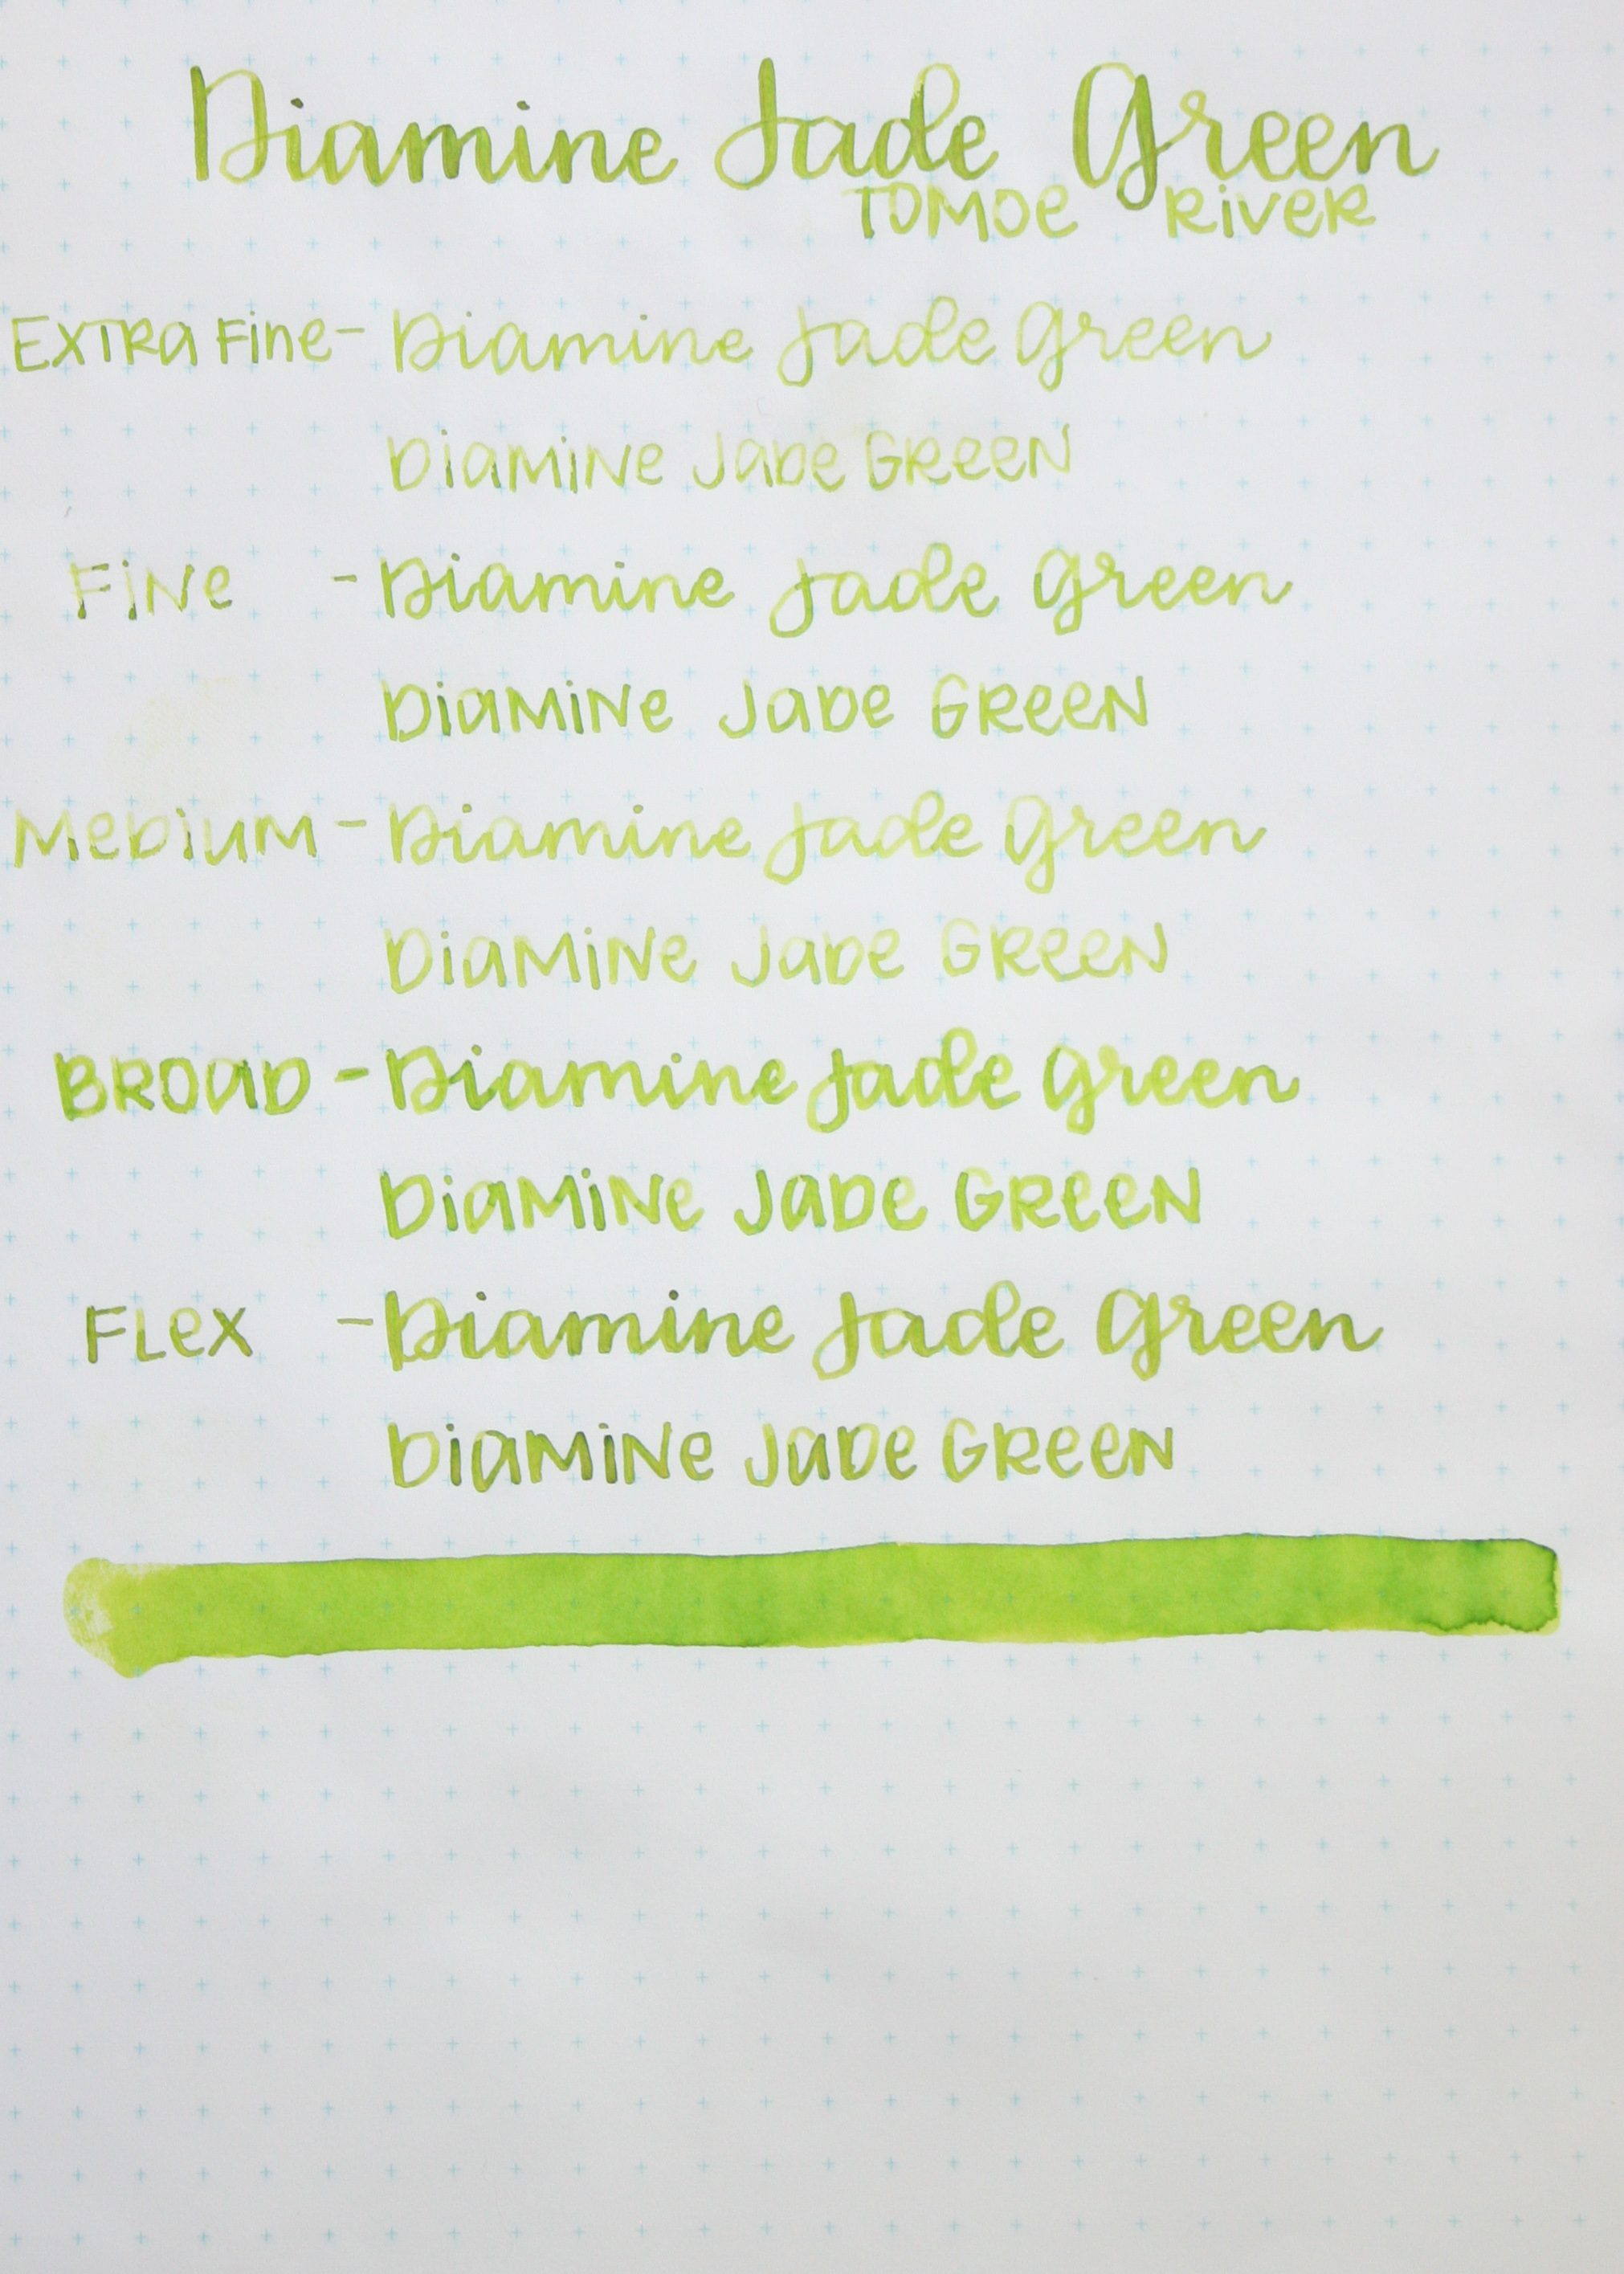 Diamine Jade Green
TOMOE RiVER
EXTRa Fine - Diamine Jade Green
DiaMiNe Jade GReeN
FiNe - Diamine Jade Green
DiaMiNe Jade GReeN
MeDiUM - Diamine Jade Green
DiaMiNe Jade GReeN
BROaD - Diamine Jade Green
DiaMiNe Jade GReeN
FLeX - Diamine Jade Green
DiaMiNe Jade GReeN